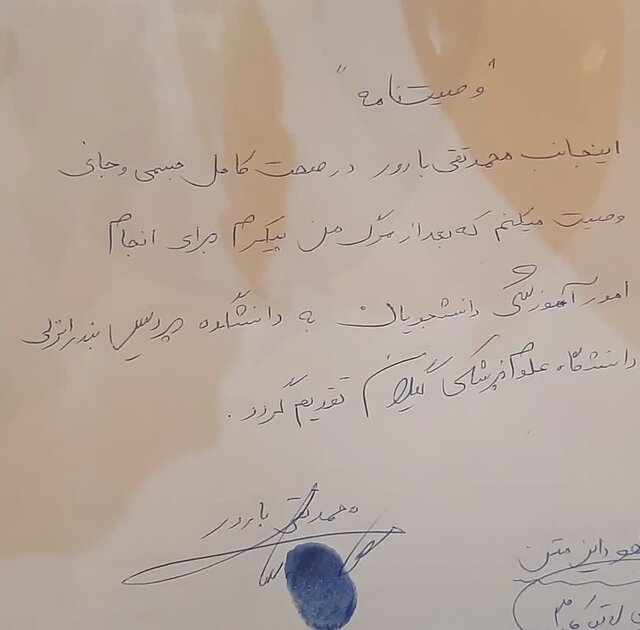 "وصیت‌نامه"
اینجانب محمدتقی بارور در صحت کامل جسمی و جانی
وصیت میکنم که بعد از مرگ من پیکرم برای انجام
امور آموزشی دانشجویان به دانشکده پردیس بندرانزلی
دانشگاه علوم پزشکی گیلان تقدیم گردد.
محمدتقی بارور
این متن